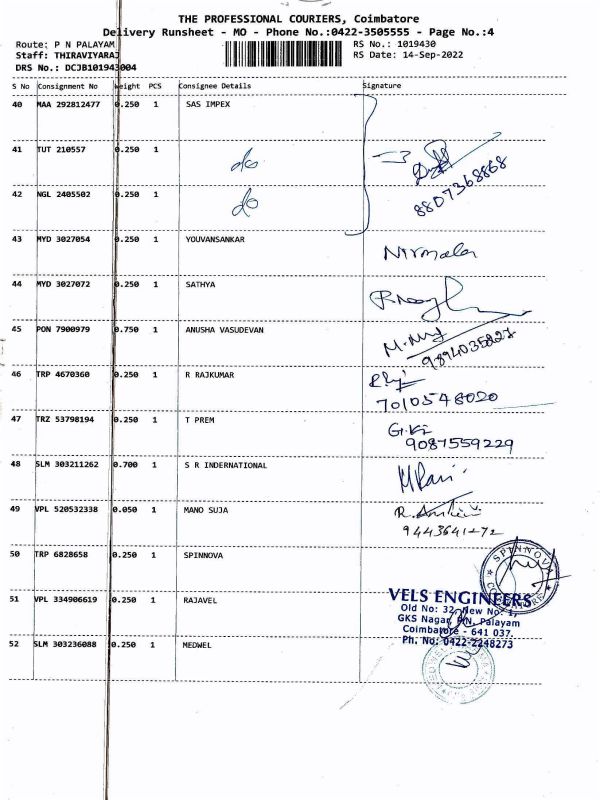 THE PROFESSIONAL COURIERS, Coimbatore
Delivery Runsheet - MO - Phone No.:0422-3505555 - Page No.:4
Route: P N PALAYAM RS No.: 1019430
Staff: THIRAVIYARAJ RS Date: 14-Sep-2022
DRS No.: DCJB101943004
S No Consignment No Weight PCS Consignee Details Signature
40 MAA 292812477 0.250 1 SAS IMPEX
41 TUT 210557 0.250 1 do
8807368868
42 NGL 2405502 0.250 1 do
43 MYD 3027054 0.250 1 YOUVANSANKAR Nirmala
44 MYD 3027072 0.250 1 SATHYA
45 PON 7900979 0.750 1 ANUSHA VASUDEVAN
9894035827
46 TRP 4670360 0.250 1 R RAJKUMAR
7010548020
47 TRZ 53798194 0.250 1 T PREM
9087559229
48 SLM 303211262 0.700 1 S R INDERNATIONAL
49 VPL 520532338 0.050 1 MANO SUJA
9443641272
50 TRP 6828658 0.250 1 SPINNOVA
SPINNOVA
COIMBATORE
51 VPL 334906619 0.250 1 RAJAVEL
VELS ENGINEERS
Old No: 32, New No: 1,
GKS Nagar, P.N. Palayam
Coimbatore - 641 037.
Ph. No: 0422-2248273
52 SLM 303236088 0.250 1 MEDWEL